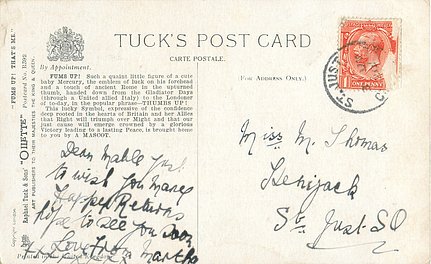 TUCK'S POST CARD
CARTE POSTALE.
By Appointment.
(FOR ADDRESS ONLY.)
FUMS UP! Such a quaint little figure of a cute
baby Mercury, the emblem of luck on his forehead
and a touch of ancient Rome in the upturned
thumb, handed down from the Gladiator Days
(through a united allied Italy) to the Londoner
of to-day, in the popular phrase—THUMBS UP!
This lucky Symbol, expressive of the confidence
deep rooted in the hearts of Britain and her Allies
that Right will triumph over Might and that our
just cause will emerge crowned by a glorious
Victory leading to a lasting Peace, is brought home
to you by A MASCOT.
Dear Mable Just
to wish you Many
Happy Returns
hope to see you soon
Love from Martha
Printed in
"FUMS UP! THAT'S ME."
Postcard No.
Raphael Tuck & Sons' "OILETTE"
ART PUBLISHERS TO THEIR MAJESTIES THE KING & QUEEN.
ONE PENNY
ST JUST
Miss M. Thomas
Kenijack
St. Just SO